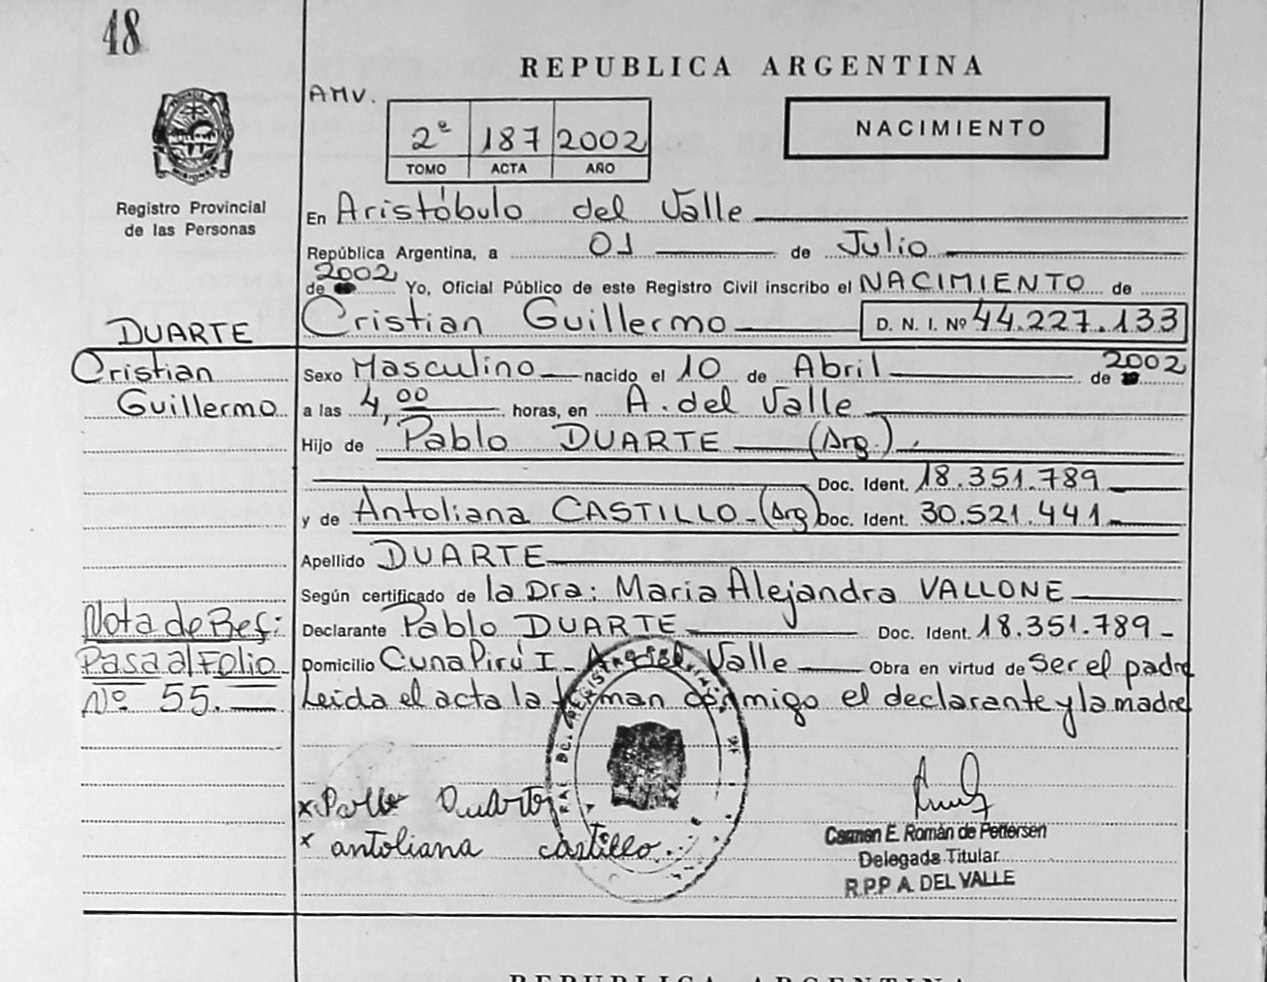 48
REPUBLICA ARGENTINA
AMV.
2º 187 2002
TOMO ACTA AÑO
NACIMIENTO
MISIONES
Registro Provincial
de las Personas
En Aristóbulo del Valle
República Argentina, a 01 de Julio
de 2002 Yo, Oficial Público de este Registro Civil inscribo el NACIMIENTO de
Cristian Guillermo D. N. I. Nº 44.227.133
DUARTE
Cristian
Guillermo
Sexo Masculino nacido el 10 de Abril de 2002
a las 4,00 horas, en A. del Valle
Hijo de Pablo DUARTE (Arg.)
Doc. Ident. 18.351.789
y de Antoliana CASTILLO - (Arg) Doc. Ident. 30.521.441
Apellido DUARTE
Según certificado de la Dra: Maria Alejandra VALLONE
Nota de Ref:
Pasa al Folio
Nº 55.
Declarante Pablo DUARTE Doc. Ident. 18.351.789
Domicilio CunaPirú I - Valle Obra en virtud de ser el padre
Leida el acta la firman conmigo el declarante y la madre
x Pablo Duarte
x antoliana castillo
Carmen E. Román de Pettersen
Delegada Titular
R.P.P A. DEL VALLE
REPUBLICA ARGENTINA